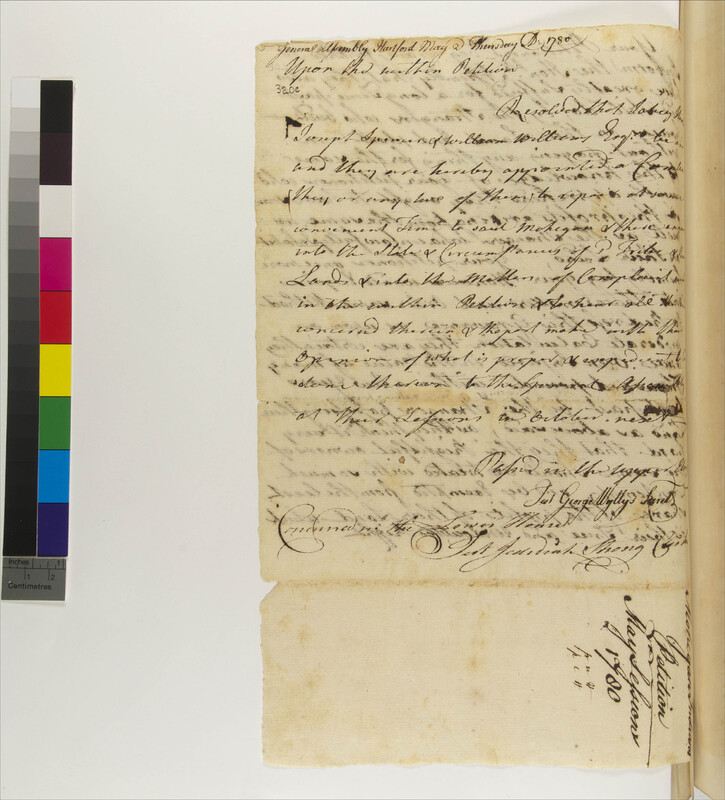 General Assembly Hartford May 2d Thursday Do 1780
Upon the within Petition
320c
Resolved that
Joseph Spencer & William Williams Esqrs be
and they are hereby appointed a Com
they or any two of them to repair at some
convenient Time to said Mohegan & there
into the State & Circumstances of sd Tribe &
Lands & into the Matters of Complaint
in the within Petition & to hear all
concerned therein & Report make with
Opinion of what is proper & expedient
done thereon to the General Assem
at their Sessions in October next
Passed in the upper
Test George Wyllys Secret
Concurred in the Lower House
Test Jedidiah Strong Clerk
Mohegan Indians
Petition
May Session
1780
Inches 1
1 2
Centimetres